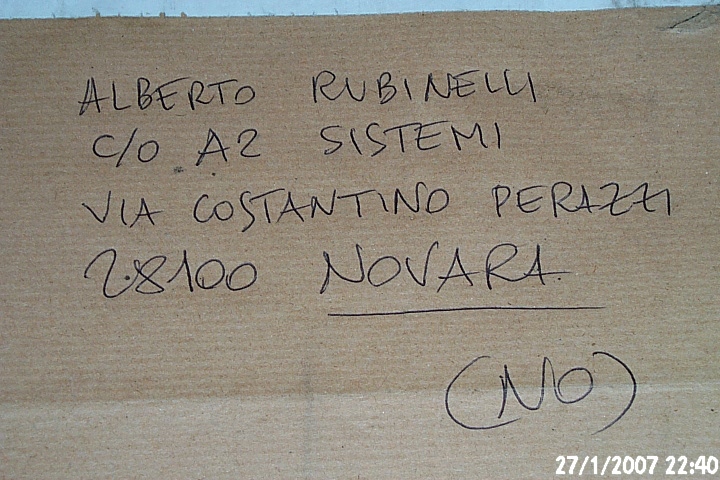 ALBERTO RUBINELLI
C/O A2 SISTEMI
VIA COSTANTINO PERAZZI
28100 NOVARA
(NO)
27/1/2007 22:40